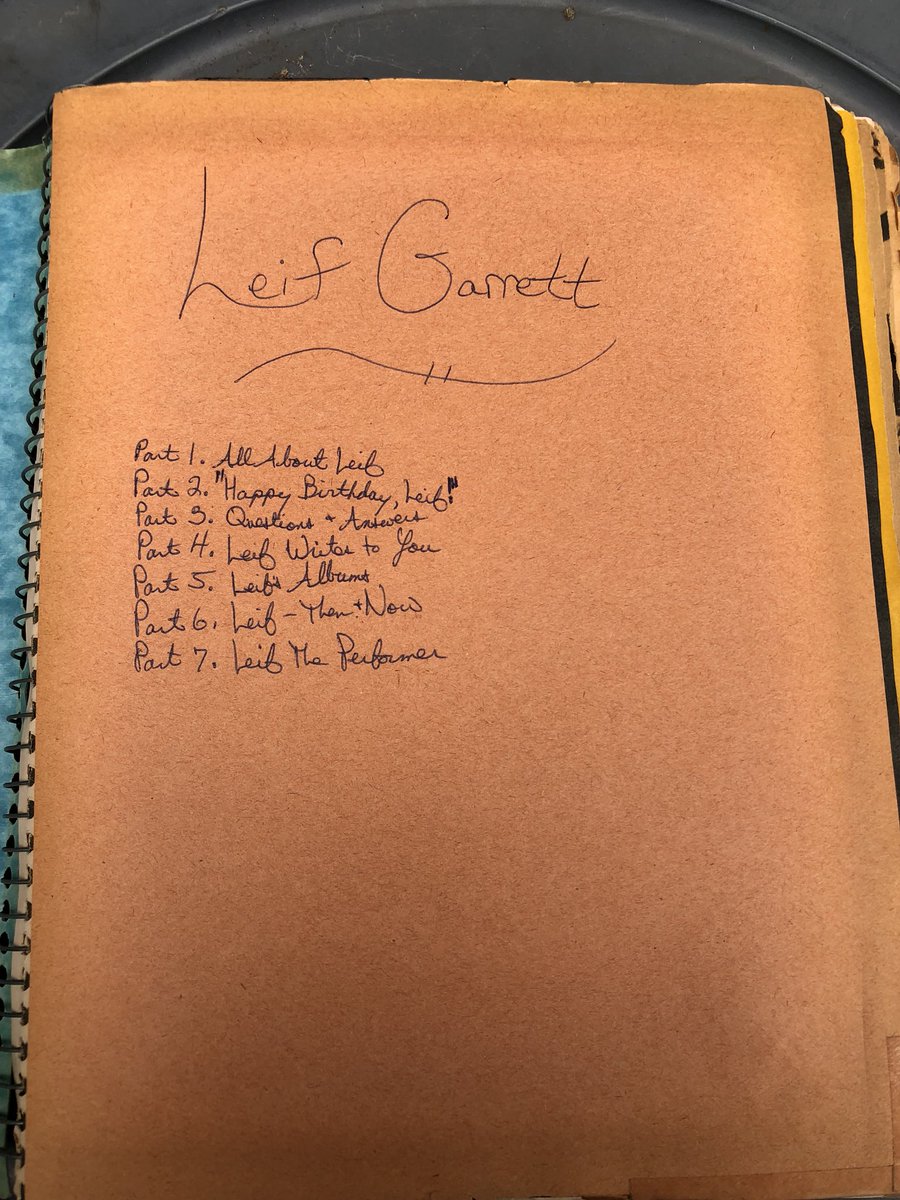 Leif Garrett
Part 1. All About Leif
Part 2. "Happy Birthday, Leif!"
Part 3. Questions + Answers
Part 4. Leif Writes to You
Part 5. Leif's Albums
Part 6. Leif - Then + Now
Part 7. Leif The Performer